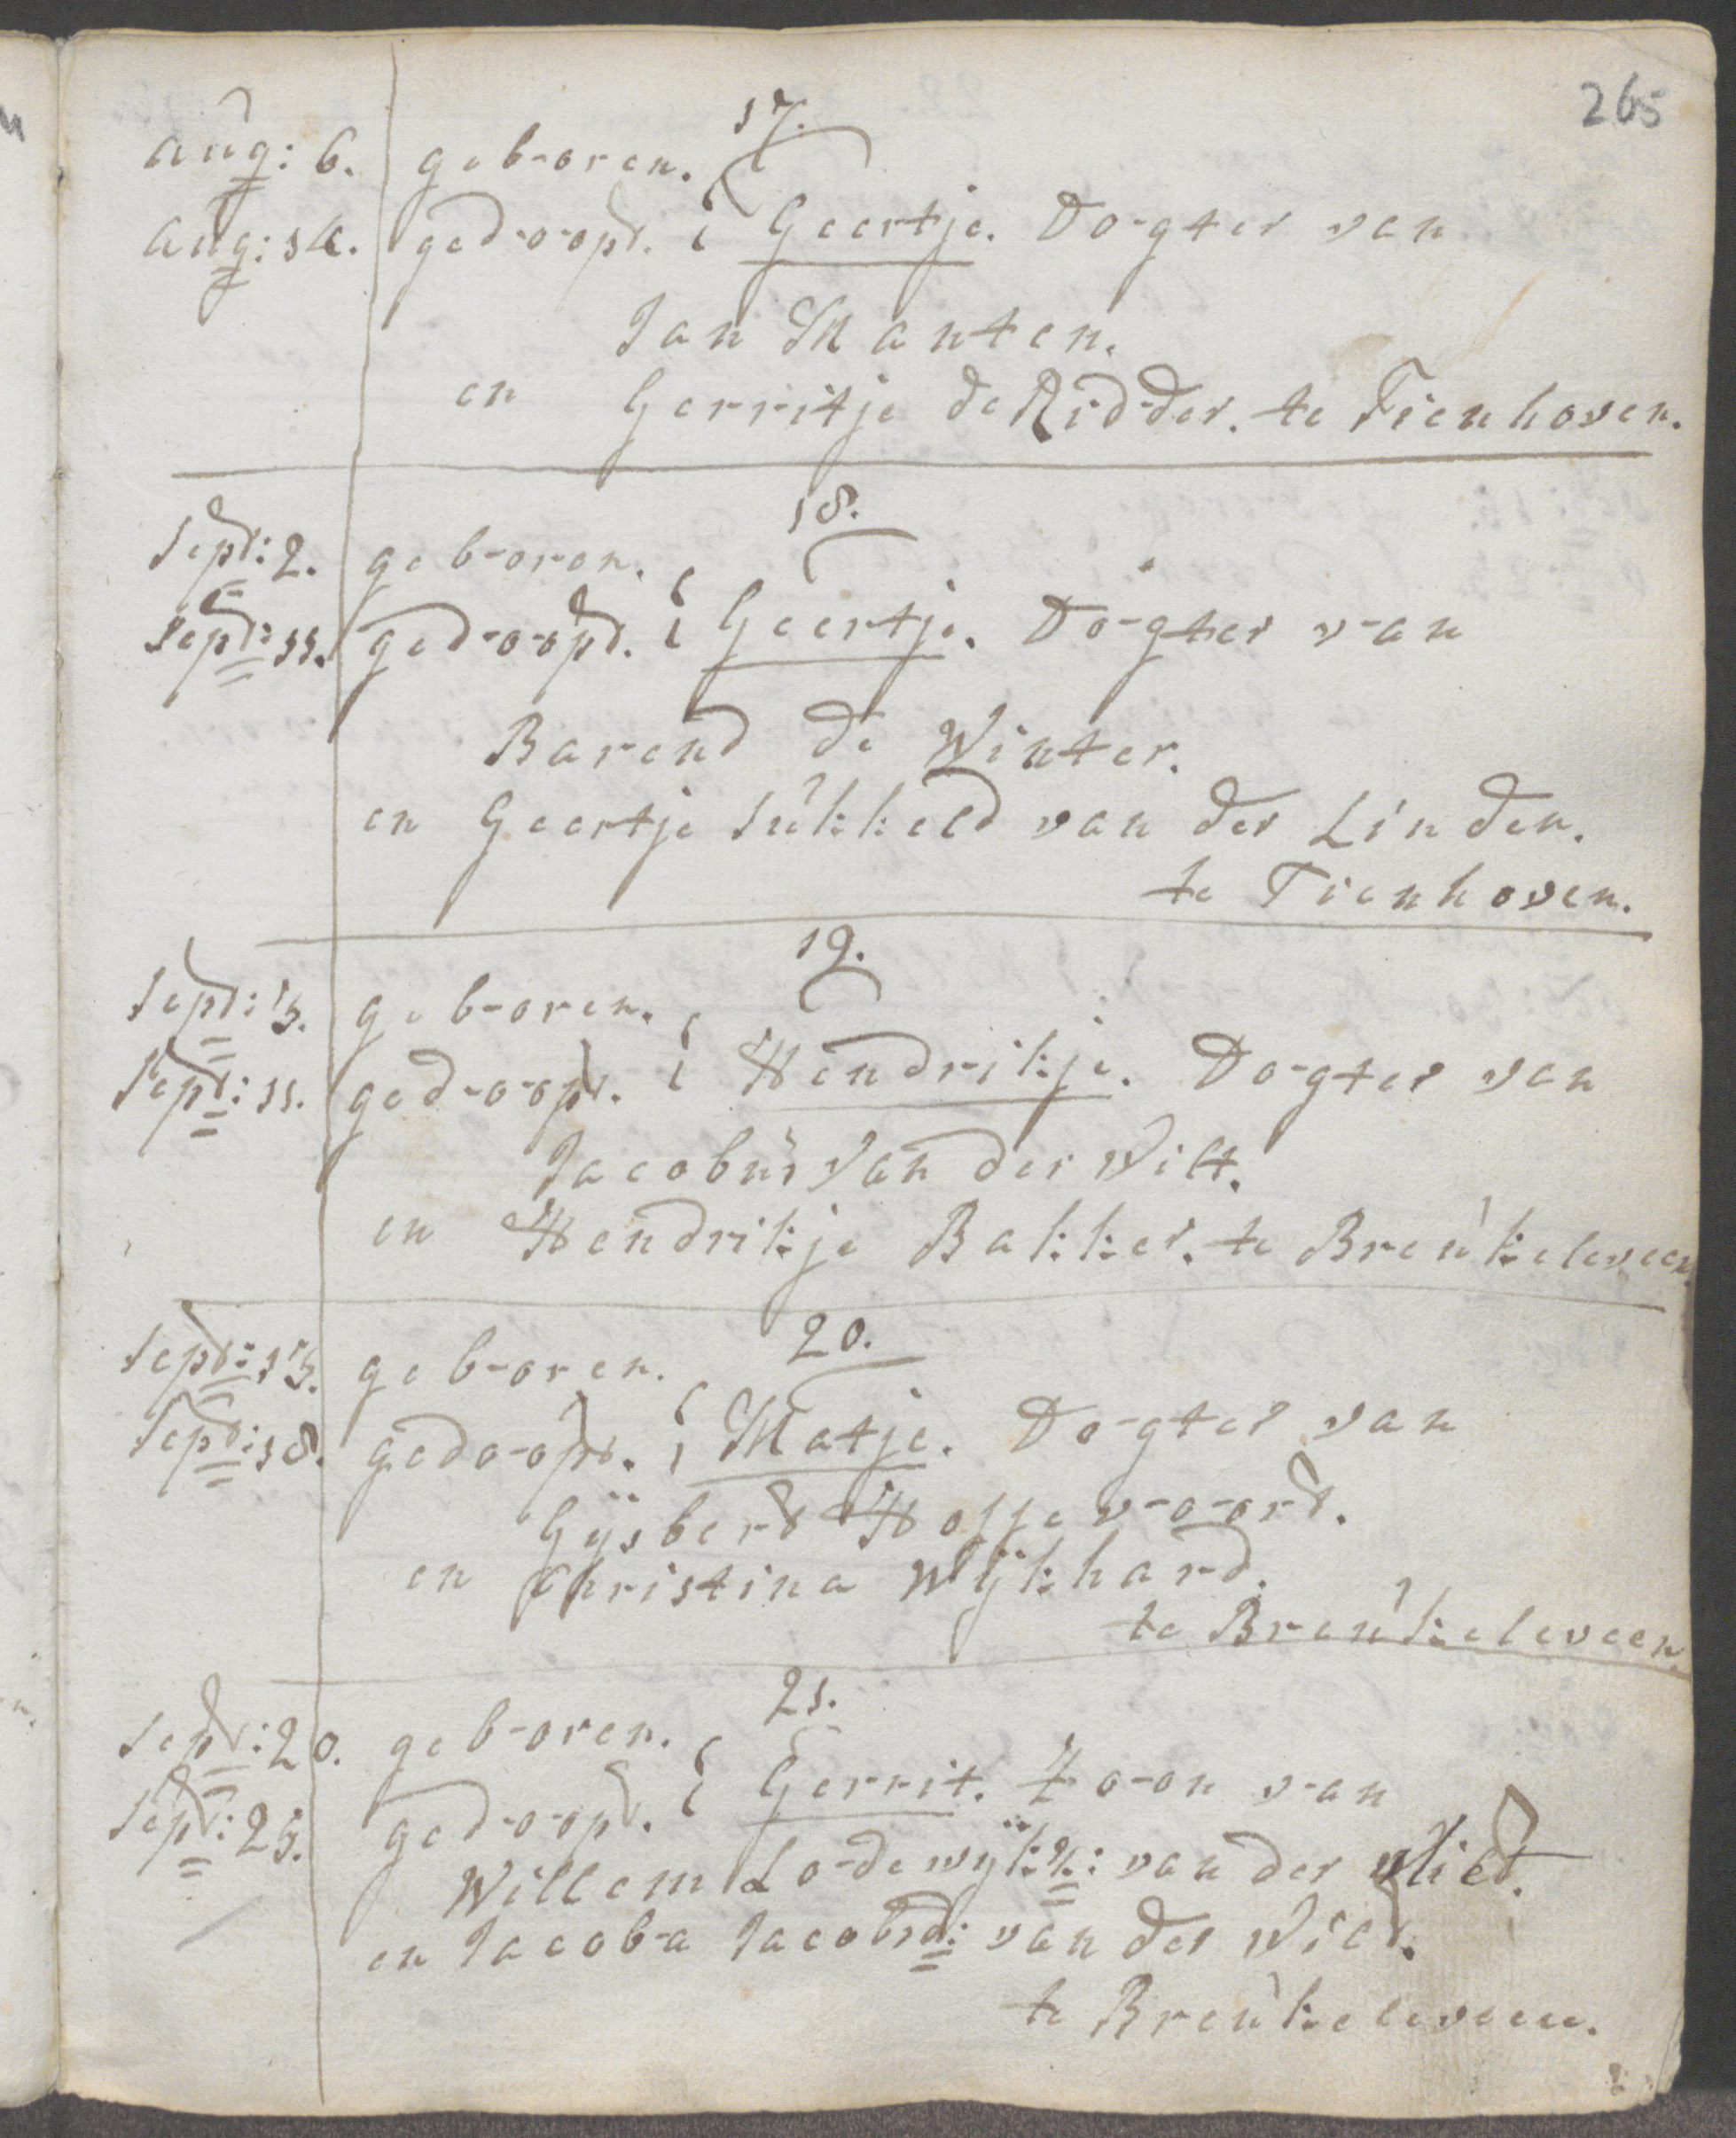 265
17.
aug: 6. geboren.
aug: 14. gedoopt. Geertje. Dogter van
Jan Manten.
en Gerritje de Ridder. te Tienhoven.
18.
Sept: 2. geboren.
Sept: 11. gedoopt. Geertje. Dogter van
Barend de Winter.
en Geertje Sukkeld van der Linden.
te Tienhoven.
19.
Sept: 3. geboren.
Sept: 11. gedoopt. Hendrikje. Dogter van
Jacobus van der Wilt.
en Hendrikje Bakker. te Breukeleveen.
20.
Sept: 13. geboren.
Sept: 18. gedoopt. Matje. Dogter van
Gÿsbert Hoffevoord.
en Christina Wÿkhard.
te Breukeleveen.
21.
Sept: 20. geboren.
Sept: 25. gedoopt. Gerrit. Zoon van
Willem Lodewÿkz: van der Vliet.
en Jacoba Jacobsd: van der Wilt.
te Breukeleveen.